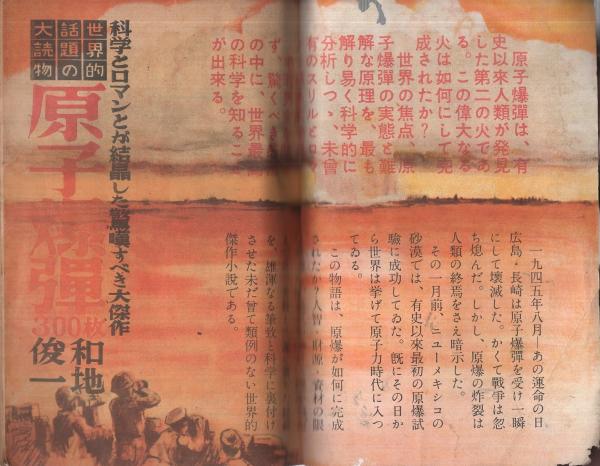 原子爆彈は、有
史以來人類が発見
した第二の火であ
る。この偉大なる
火は如何にして完
成されたか？
世界の焦点、原
子爆彈の実態と難
解な原理を、最も
解り易く科学的に
分析しつゝ、未曾
有のスリルとロマ
ず、驚くべき
の中に、世界最高
の科学を知ること
が出来る。
世界的
話題の
大読物
科学とロマンとが結晶した驚嘆すべき大傑作
原子爆彈
300枚
和地
俊一
一九四五年八月―あの運命の日
広島・長崎は原子爆彈を受け一瞬
にして壊滅した。かくて戰爭は忽
ち熄んだ。しかし、原爆の炸裂は
人類の終焉をさえ暗示した。
その一月前、ニューメキシコの
砂漠では、有史以來最初の原爆試
驗に成功してゐた。既にその日か
ら世界は挙げて原子力時代に入つ
てゐる。
この物語は、原爆が如何に完成
されたか、人智・財源・資材の限
を、雄渾なる筆致と科学に裏付け
させた未だ曾て類例のない世界的
傑作小説である。